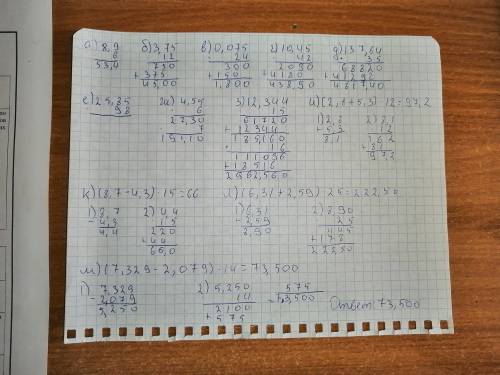 а) 8,9 б) 3,75 в) 0,075 г) 10,45 д) 137,64
6 12 24 42 35
53,4 750 300 2090 68820
+375 +150 +4180 +41292
45,00 1,800 438,90 4817,40
е) 25,85 ж) 4,55 з) 12,344 и) (2,8+5,3)·12=97,2
98 6 15
27,30 61720 1) 2,8 2) 8,1
7 +12344 +5,3 12
191,10 185,160 8,1 162
6 +81
111096 97,2
+18516
2962,560
к) (8,7-4,3)·15=66 л) (6,31+2,59)·25=222,50
1) 8,7 2) 4,4 1) 6,31 2) 8,90
-4,3 15 +2,59 25
4,4 220 8,90 445
+44 +178
66,0 222,50
м) (7,329-2,079)·14=73,500
1) 7,329 2) 5,250 575
-2,079 14 73,500
5,250 2100 Ответ: 73,500
+575